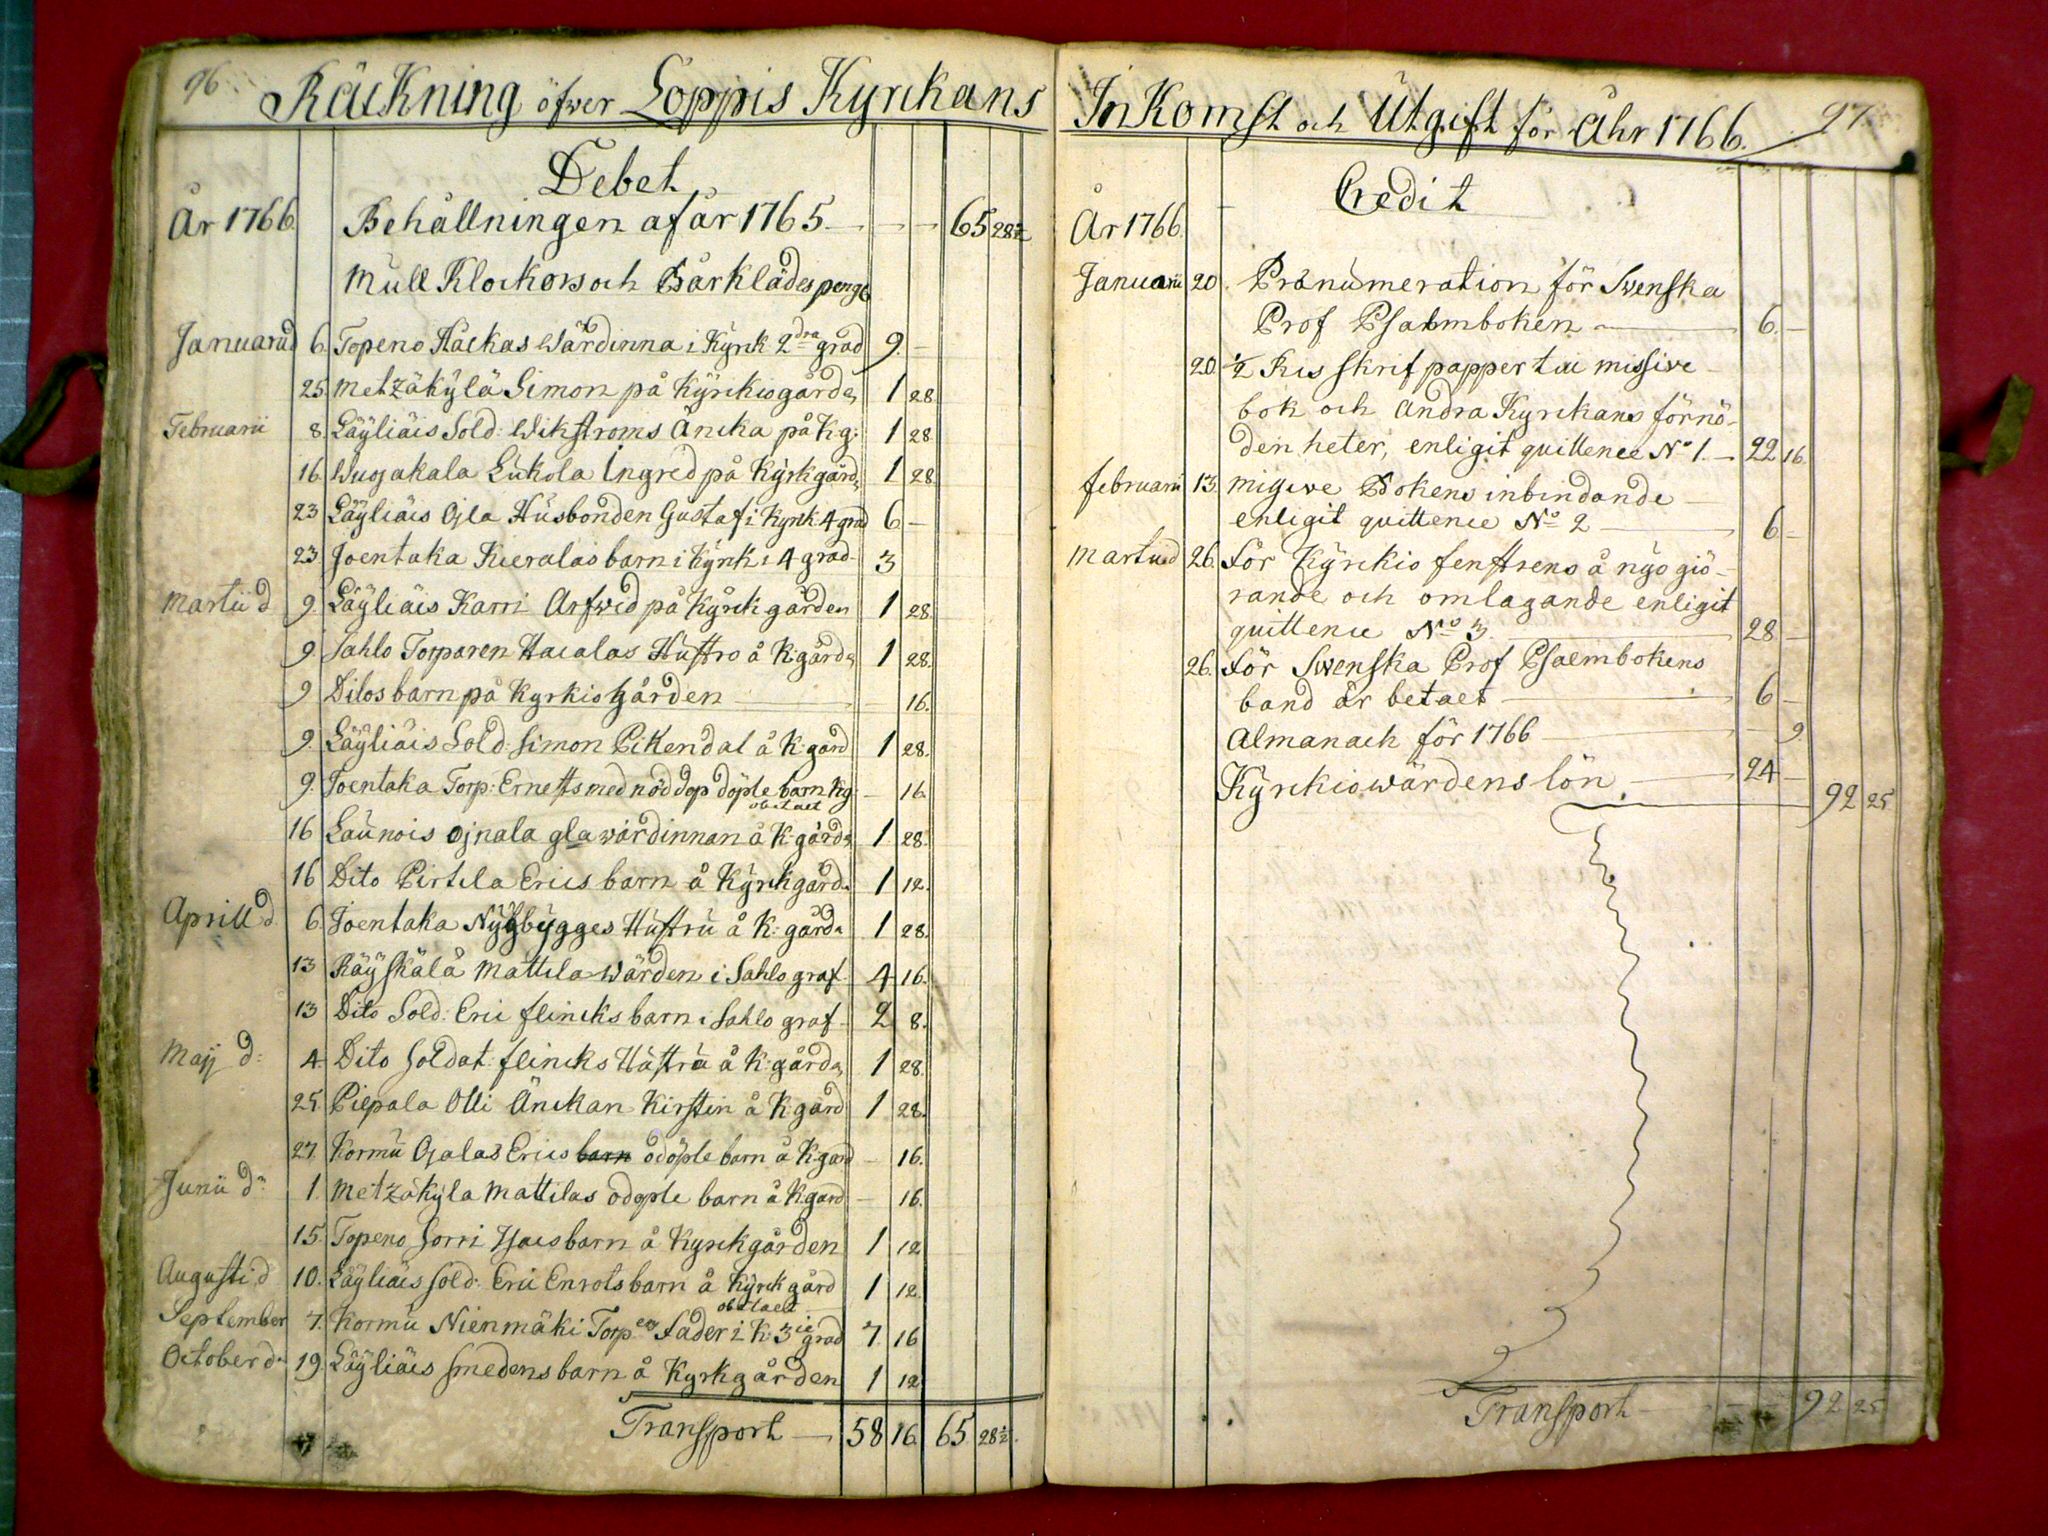 96
Räckning öfwer Loppis Kyrckans
Debet
År 1766. Behållningen af år 1765 — — — 65 28½
Mull Klockors och Bårklädes peng:
Januarii d 6. Topeno Häckas Wärdinna i Kyrk 2dra grad 9. —
25 Metzäkÿlä Simon på Kÿrckiogård: 1 28
Februarii 8. Läÿliäis Sold: Wikströms Äncka på K:g: 1 28
16. Wuojakala Lukola Ingrid på Kÿrkgård: 1 28
23 Läÿliäis Ojla Husbonden Gustaf i Kyrk 4 grad 6 —
23. Joentaka Kieralas barn i Kÿrk i 4 grad 3
Martii d 9. Läÿliäis Karri Arfwid på Kÿrck gården 1 28.
9. Sahlo Torparen Hacalas Hustro å K:gård: 1 28.
9 Ditos barn på Kyrkiogården — — 16.
9. Läÿliäis Sold: Simon Pikendal å K:gård 1 28.
9. Joentaka Torp: Ernests med nöddop döpte barn Kg: — 16.
obetalt
16 Launois Ojnala gla wärdinnan å K:gård: 1 28.
16 Dito Pirtila Erics barn å Kÿrckgård: 1 12.
Aprill d. 6. Joentaka Nÿbÿgges Hustru å K:gård: 1 28.
13 Räÿskälä Mattila wärden i Sahlo graf 4 16.
13 Dito Sold: Eric flincks barn i Sahlo graf 2 8.
Maij d: 4. Dito Soldat flincks Hustru å K:gård: 1 28.
25 Piepala Olli Änckan Kirstin å K:gård 1 28.
27. Kormu Ojalas Erics barn odöpte barn å K:gård — 16.
Junii d: 1. Metzäkÿla Mattilas odöpte barn å K:gård — 16.
15. Topeno Sorri Isacs barn å Kyrckgården 1 12
Augusti d 10. Läÿliäis Sold: Eric Enrots barn å Kÿrck gård 1 12.
obetalt
September 7. Kormu Nienmäki Torp:en fader i K: 3ie grad 7. 16
October d: 19. Läÿliäis Smedens barn å Kyrkgården 1 12
Transport — 58 16. 65 28½.
InKomst och Utgift för Åhr 1766.
97.
Credit
År 1766.
Januarii 20. Prænumeration för Swenska
Prof Psalmboken — 6. —
20. ½ Ris skrif papper till missive
bok och andra Kyrckans förnö-
den heter, enligit quittence No 1. — 22 16.
februarii 13. missive Bokens inbindande
enligit quittence No 2 — 6 —
Martii d 26. För Kÿrckio fenstrens å nÿo giö-
rande och omlagande enligit
quittence No 3. — 28 —
26. För Swenska Prof Psalmbokens
band är betalt — 6 —
Almanach för 1766 — — 9.
Kÿrckiowärdens lön — 24 — 92 25
Transport — 92 25